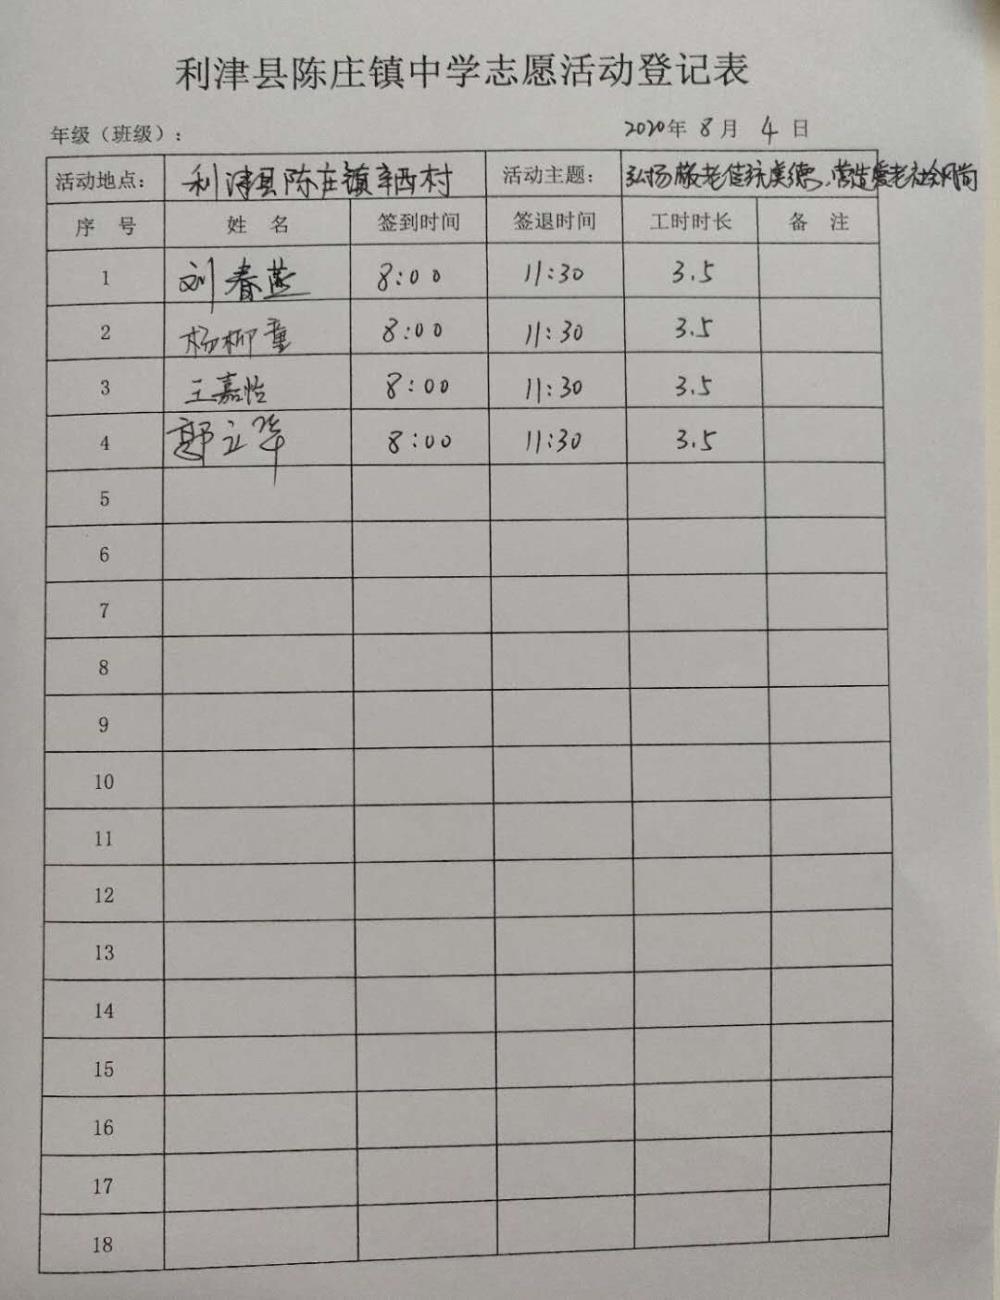 利津县陈庄镇中学志愿活动登记表
年级（班级）： 2020年 8月 4日
活动地点： 利津县陈庄镇辛西村 活动主题： 弘扬敬老传统美德、营造爱老社会风尚
序 号 姓 名 签到时间 签退时间 工时时长 备 注
1 刘春燕 8:00 11:30 3.5
2 杨柳童 8:00 11:30 3.5
3 王嘉怡 8:00 11:30 3.5
4 郭立华 8:00 11:30 3.5
5
6
7
8
9
10
11
12
13
14
15
16
17
18